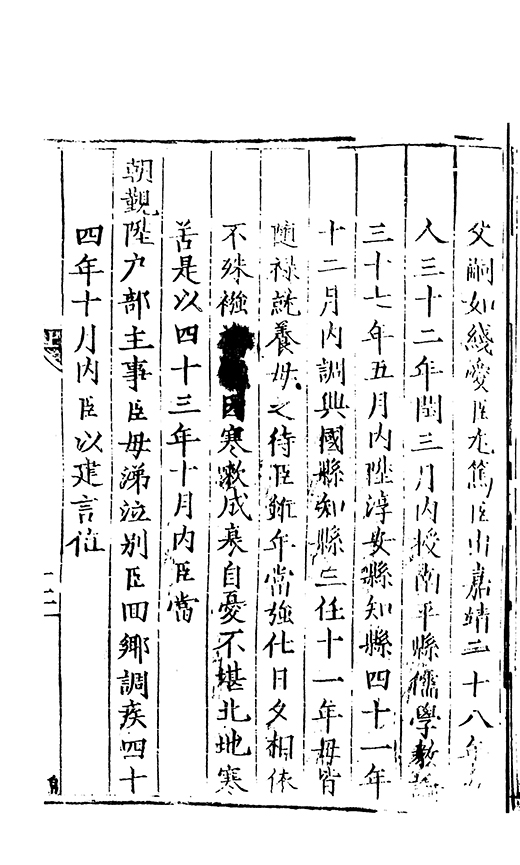 父嗣如綫愛臣尤篤臣由嘉靖二十八年
人三十二年閏三月內授南平縣儒學教諭
三十七年五月內陞淳安縣知縣四十一年
十二月內調興國縣知縣三任十一年母皆
隨祿就養母之待臣雖年當強仕日夕相依
不殊襁因寒漱成衰自憂不堪北地寒
苦是以四十三年十月內臣當
朝覲陞户部主事臣母涕泣别臣回鄉調疾四十
四年十月內臣以建言位